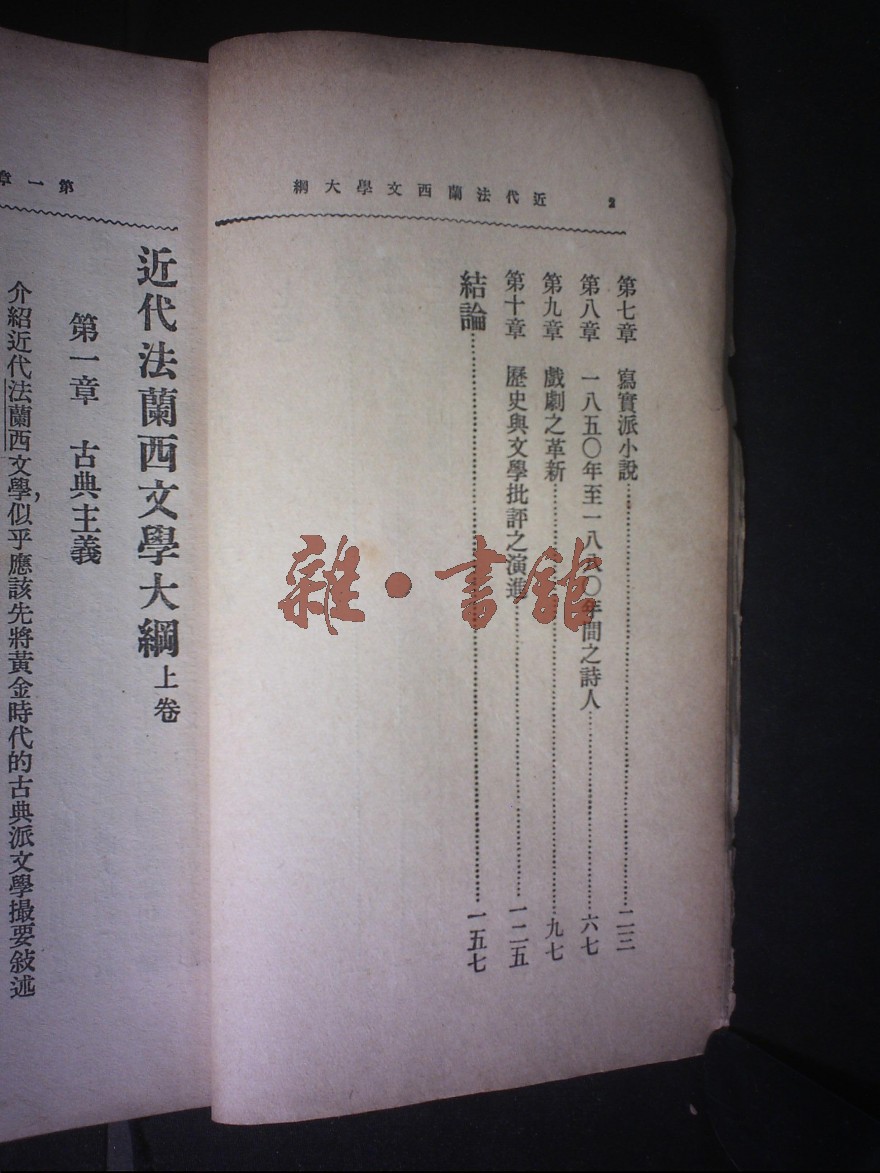 近代法蘭西文學大綱 2
第七章 寫實派小說……二三
第八章 一八五〇年至一八八〇年間之詩人……六七
第九章 戲劇之革新……九七
第十章 歷史與文學批評之演進……一二五
結論……一五七
雜·書館
第一章
近代法蘭西文學大綱 上卷
第一章 古典主義
介紹近代法蘭西文學,似乎應該先將黃金時代的古典派文學撮要敍述